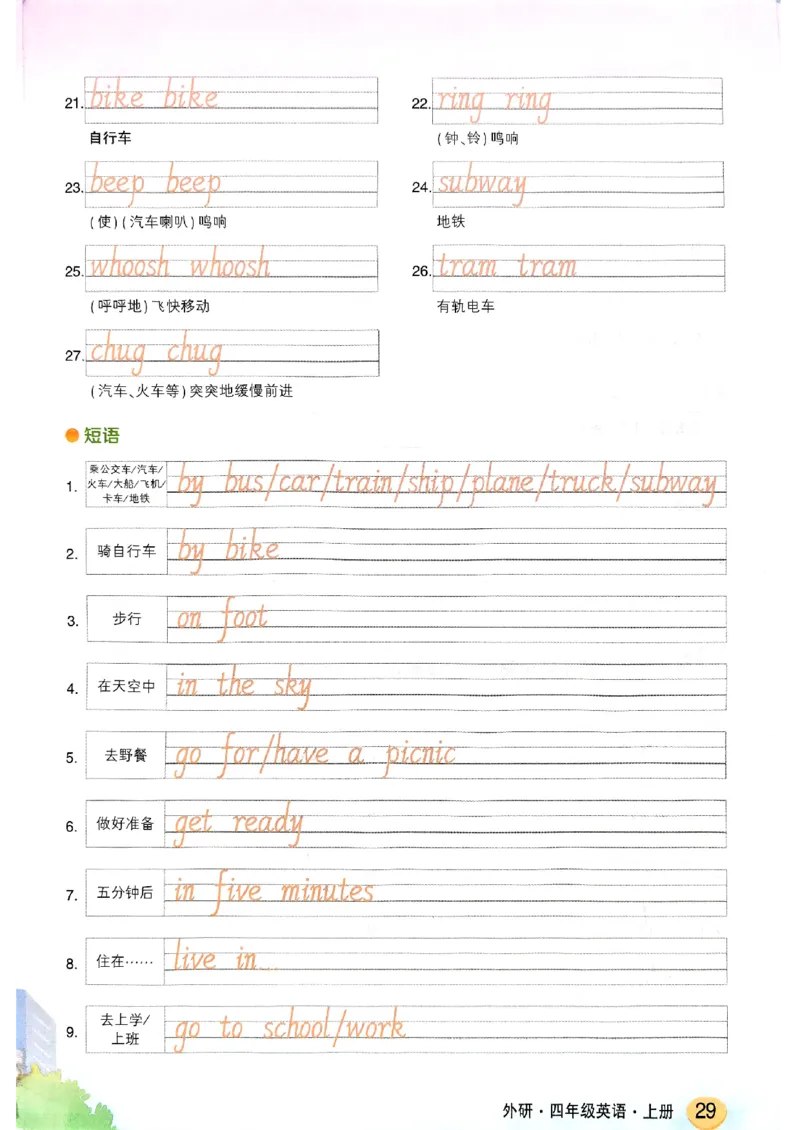 21. bike bike
自行车
22. ring ring
(钟、铃)鸣响
23. beep beep
(使)(汽车喇叭)鸣响
24. subway
地铁
25. whoosh whoosh
(呼呼地)飞快移动
26. tram tram
有轨电车
27. chug chug
(汽车、火车等)突突地缓慢前进
短语
1. 乘公交车/汽车/
火车/大船/飞机/
卡车/地铁
by bus/car/train/ship/plane/truck/subway
2. 骑自行车 by bike
3. 步行 on foot
4. 在天空中 in the sky
5. 去野餐 go for/have a picnic
6. 做好准备 get ready
7. 五分钟后 in five minutes
8. 住在…… live in...
9. 去上学/
上班
go to school/work
外研·四年级英语·上册 29